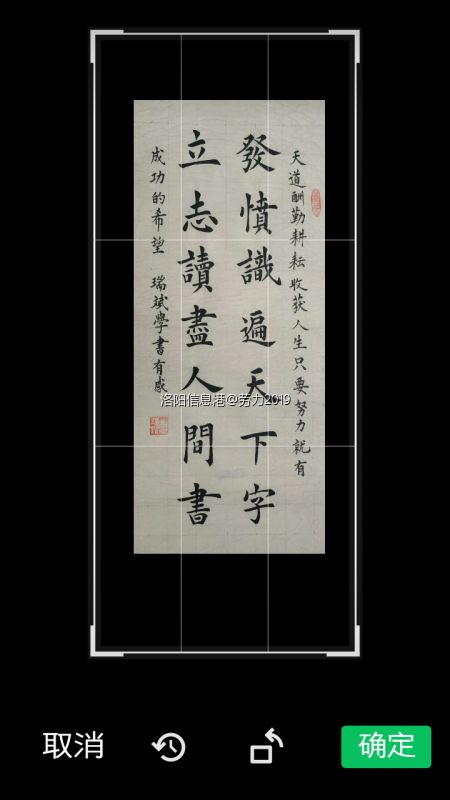 天道酬勤耕耘收获人生只要努力就有
發憤識遍天下字
立志讀盡人間書
成功的希望 瑞斌學書有感
洛阳信息港@劳力2019
取消
确定